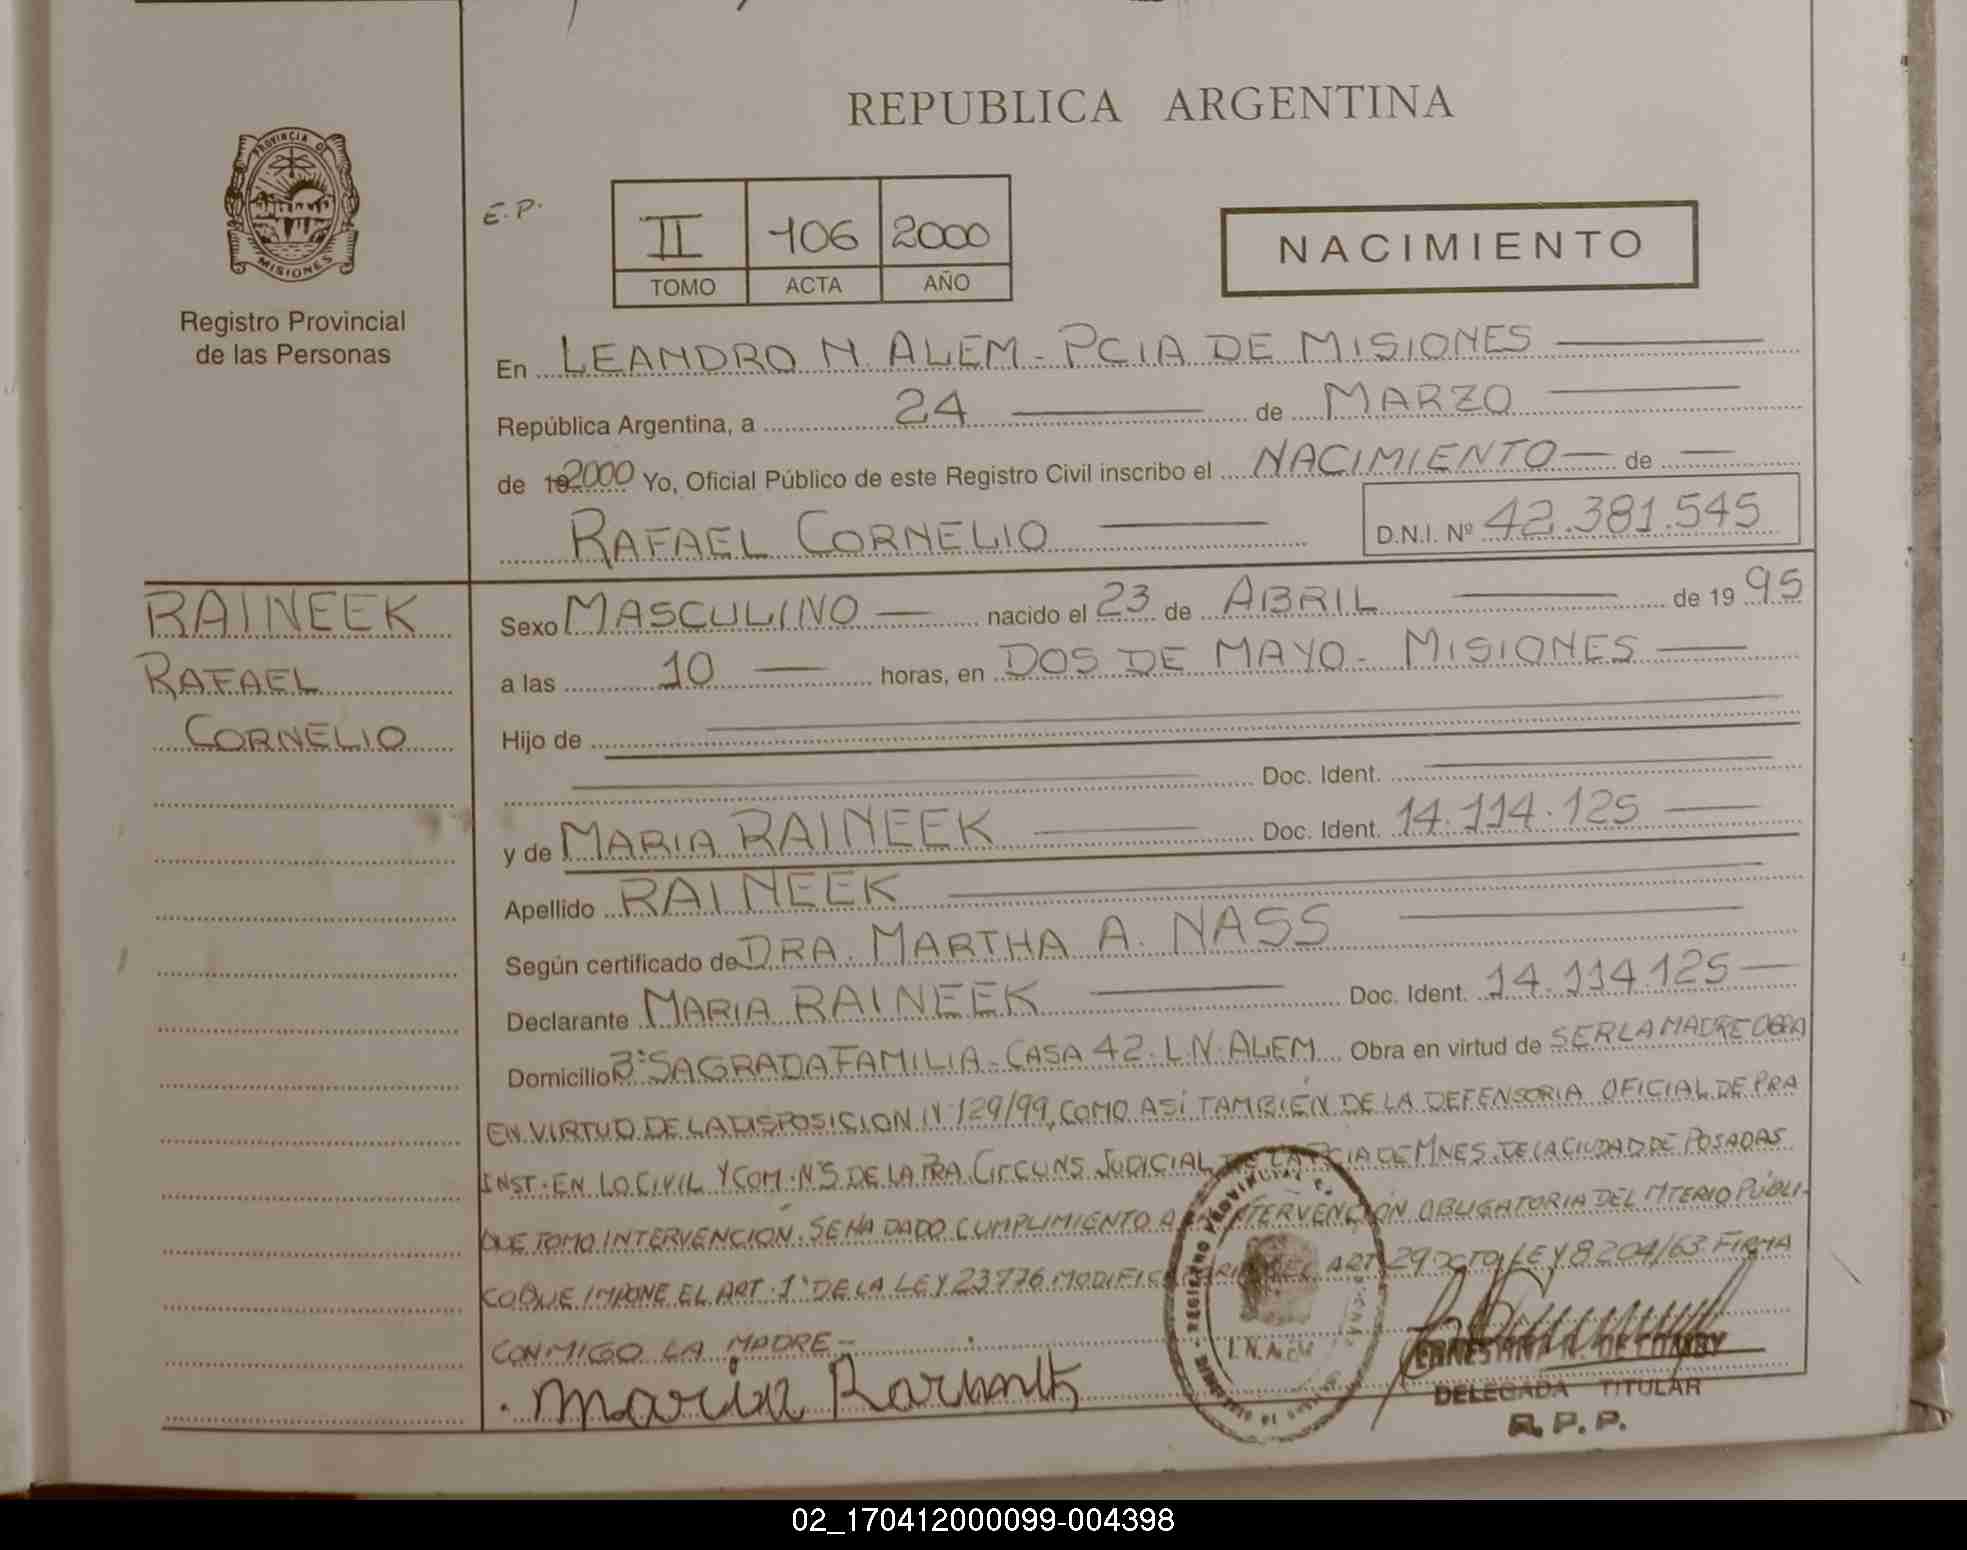 REPUBLICA ARGENTINA
PROVINCIA DE
MISIONES
Registro Provincial
de las Personas
E.P.
II 106 2000
TOMO ACTA AÑO
NACIMIENTO
En LEANDRO N. ALEM - PCIA DE MISIONES
República Argentina, a 24 de MARZO
de 19 2000 Yo, Oficial Público de este Registro Civil inscribo el NACIMIENTO de
RAFAEL CORNELIO D.N.I. Nº 42.381.545
RAINEEK
RAFAEL
CORNELIO
Sexo MASCULINO nacido el 23 de ABRIL de 19 95
a las 10 horas, en DOS DE MAYO - MISIONES
Hijo de
Doc. Ident.
y de MARIA RAINEEK Doc. Ident. 14.114.125
Apellido RAINEEK
Según certificado de DRA. MARTHA A. NASS
Declarante MARIA RAINEEK Doc. Ident. 14.114.125
Domicilio Bº SAGRADA FAMILIA - CASA 42 - L.N. ALEM Obra en virtud de SER LA MADRE OBRA
EN VIRTUD DE LA DISPOSICION Nº 129/99, COMO ASÍ TAMBIÉN DE LA DEFENSORIA OFICIAL DE PRA
INST. EN LO CIVIL Y COM. Nº5 DE LA PRA. CIRCUNS JUDICIAL DE LA PCIA DE MNES. DE LA CIUDAD DE POSADAS
QUE TOMO INTERVENCIÓN. SE HA DADO CUMPLIMIENTO A LA INTERVENCIÓN OBLIGATORIA DEL MTERIO PÚBLI-
CO QUE IMPONE EL ART. 1º DE LA LEY 23776 MODIFICATORIA DEL ART 29 DCTO LEY 8204/63 FIRMA
CONMIGO LA MADRE -
Maria
REGISTRO PROVINCIAL
DELEGADA TITULAR
R.P.P.
02_170412000099-004398